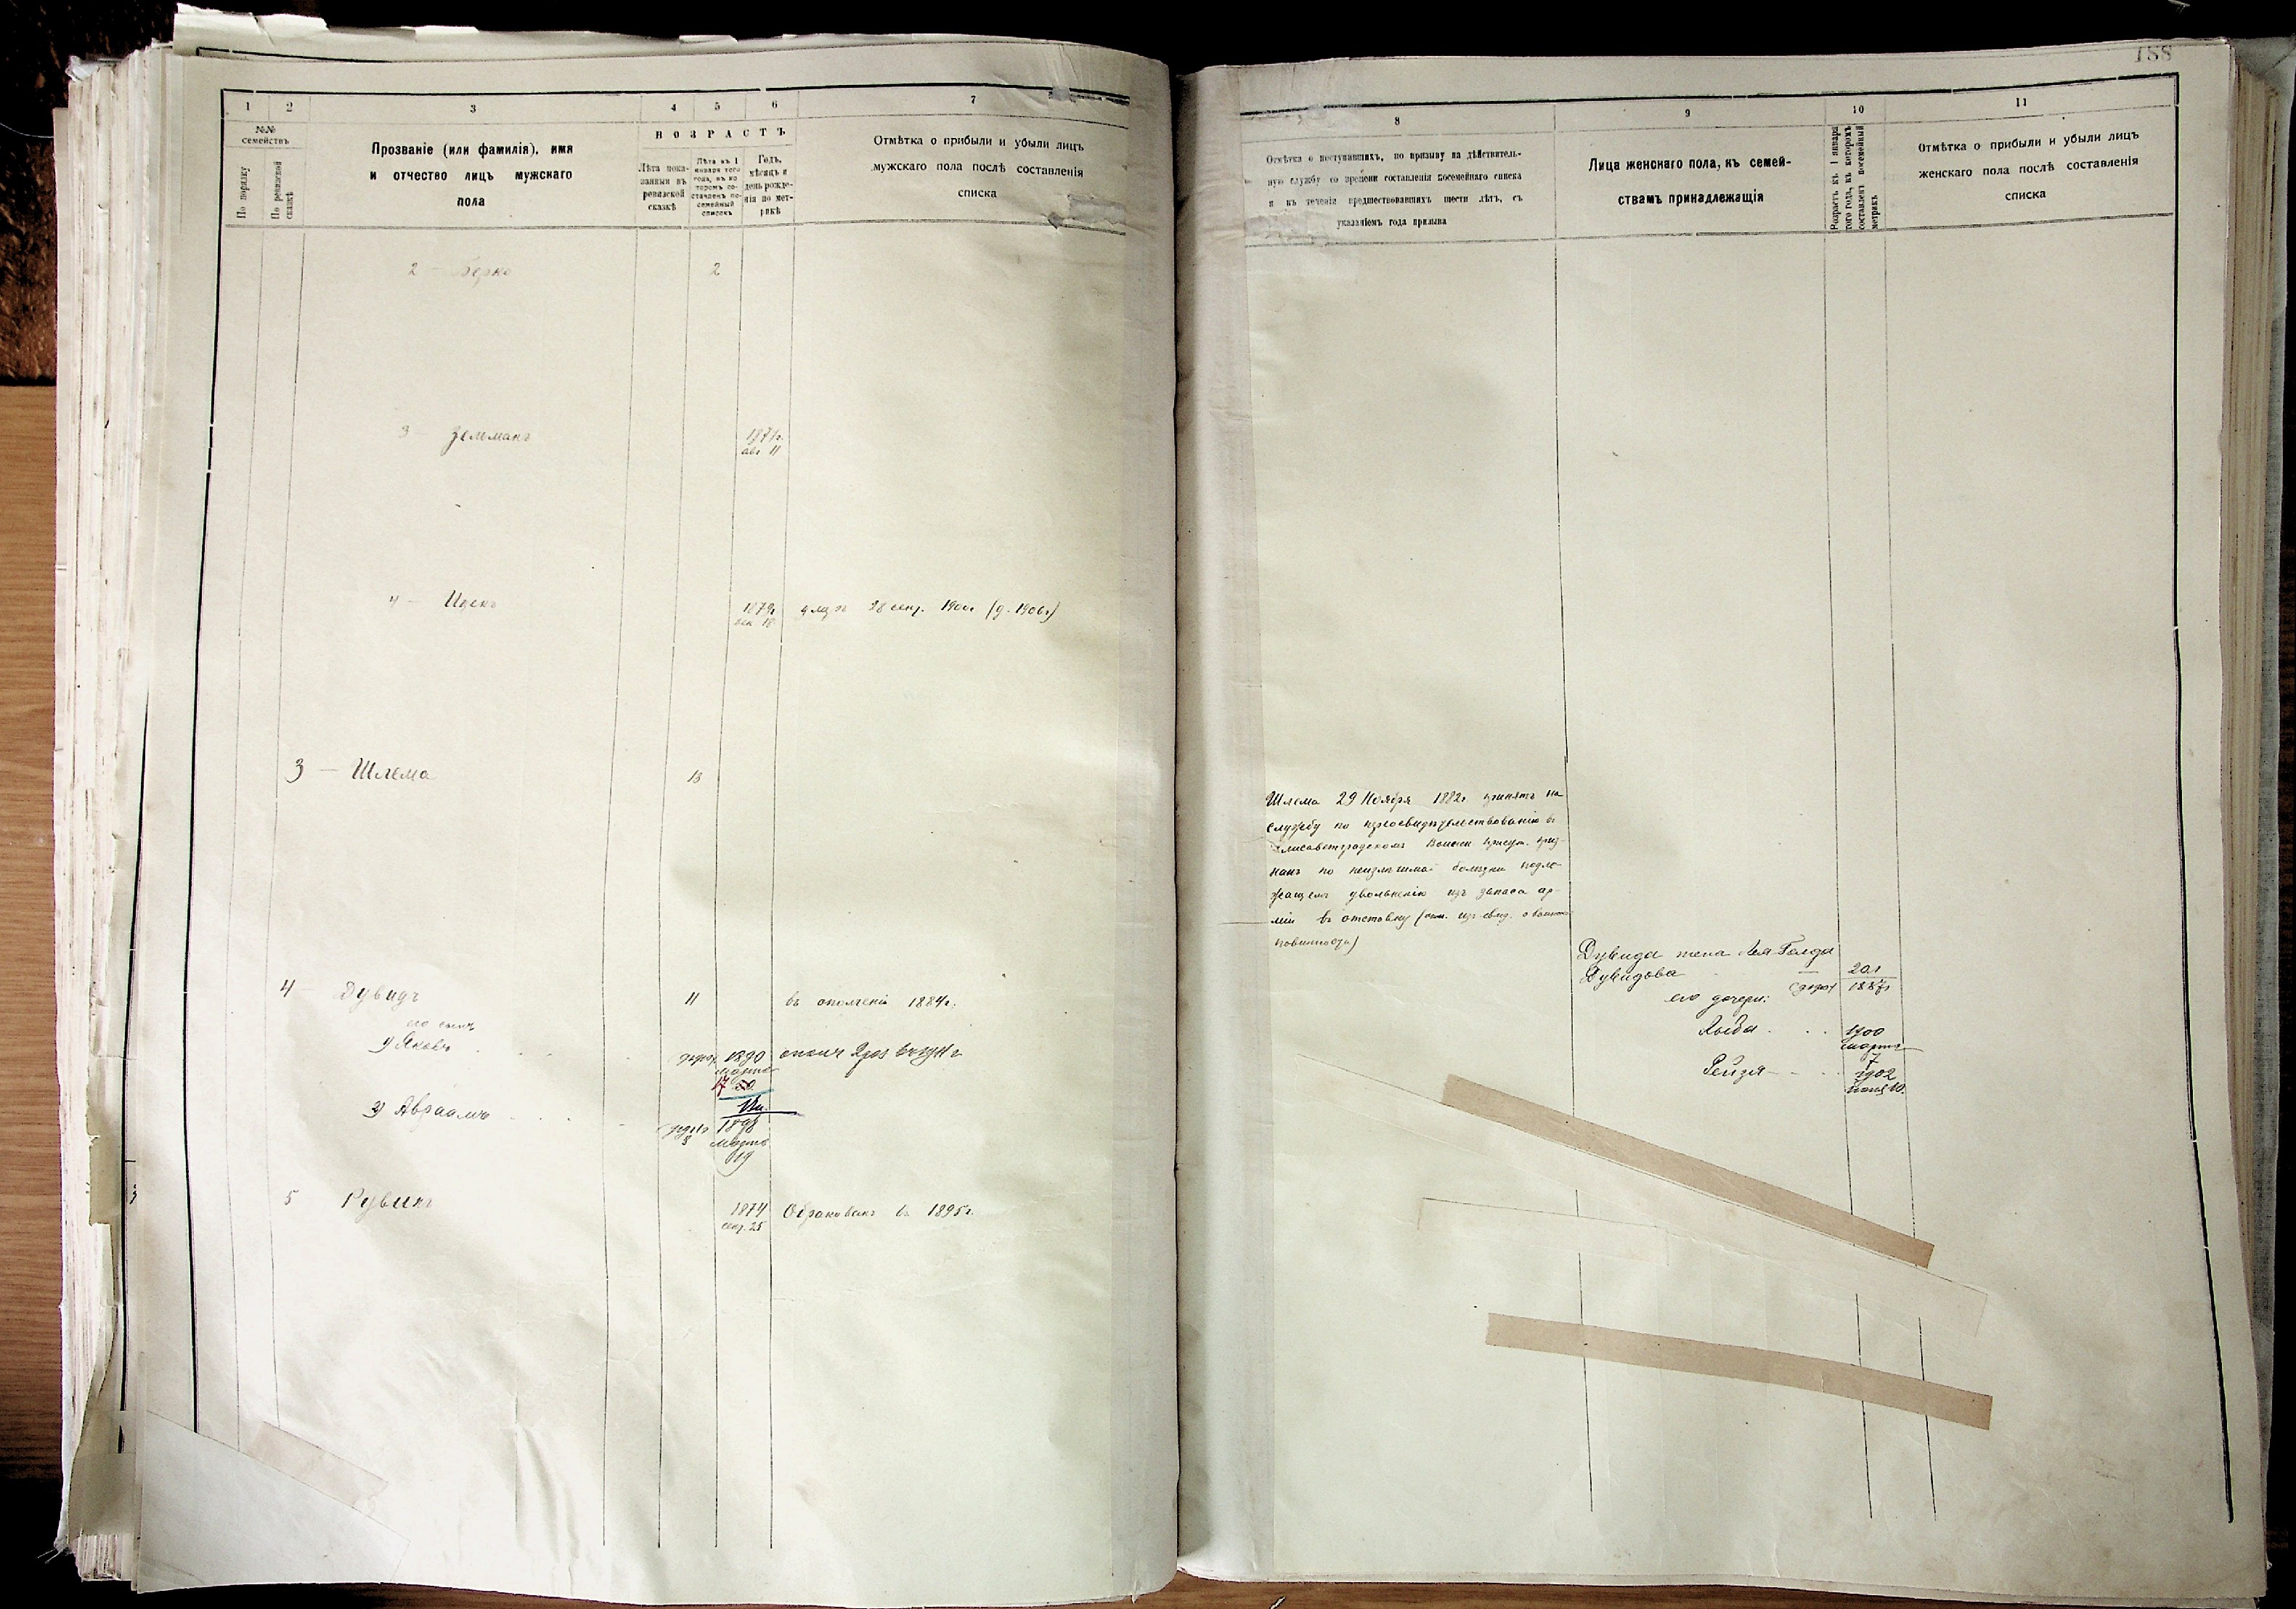 188
1 2 3 4 5 6 7
№№ семействъ
По порядку
По ревизской сказкѣ
Прозваніе (или фамилія), имя
и отчество лицъ мужскаго
пола
ВОЗРАСТЪ
Лѣта пока-
занныя въ
ревизской
сказкѣ
Лѣта къ 1
января того
года, въ ко
торомъ со-
ставленъ по-
семейный
списокъ
Годъ,
мѣсяцъ и
день рожде-
нія по мет-
рикѣ
Отмѣтка о прибыли и убыли лицъ
мужскаго пола послѣ составленія
списка
2 — Берко 2
3 — Зельманъ 1871г.
авг 11
4 — Ицекъ 1879г 28 сент. 1900г (д. 1906г)
3 — Шлема 13
4 — Дувидъ 11 въ ополченіи 1884г.
его сынъ
1) Яковъ 1890
марта
17 20
2) Авраамъ 1898
марта
19
5 Рувинъ 1874 Обракованъ въ 1895г.
сент. 25
8 9 10 11
Отмѣтка о поступавшихъ, по призыву на дѣйствитель-
ную службу со времени составленія посемейнаго списка
и въ теченіи предшествовавшихъ шести лѣтъ, съ
указаніемъ года призыва
Лица женскаго пола, къ семей-
ствамъ принадлежащія
Возрастъ къ 1 января
того года, въ которомъ
составленъ посемейный
метрикѣ
Отмѣтка о прибыли и убыли лицъ
женскаго пола послѣ составленія
списка
Шлема 29 Ноября 1882г принятъ на
службу по переосвидѣтельствованію въ
Елисаветградскомъ Воинск присут. приз-
нанъ по неизлѣчимой болѣзни подле-
жащемъ увольненію изъ запаса ар-
міи въ отставку
повинности)
Дувида жена Лея-Голда
Дувидова 20л
1887г
его дочери:
Хайва 1900
марта
7
Рейзя 1902
Іюня 10.